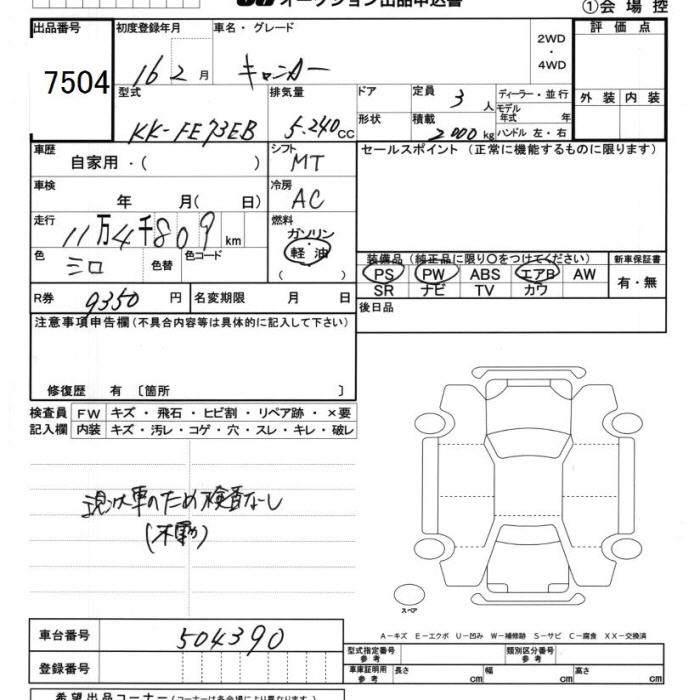 オークション出品申込書 ①会場控
出品番号 初度登録年月 車名・グレード 2WD・4WD 評価点
7504 16 2月 キャンター
型式 排気量 ドア 定員 3人 ディーラー・並行 外装 内装
モデル年式 年
KK-FE73EB 5.240cc 形状 積載 2000kg ハンドル 左・右
車歴 シフト セールスポイント (正常に機能するものに限ります)
自家用・( ) MT
車検 冷房
年 月( 日) AC
走行 燃料
11万4千809km ガソリン・
軽油
色 色替 色コード ( ) 装備品(純正品に限り〇をつけてください) 新車保証書
シロ PS PW ABS エアB AW 有・無
SR ナビ TV カワ
R券 9350円 名変期限 月 日 後日品
注意事項申告欄(不具合内容等は具体的に記入して下さい)
修復歴 有 〔箇所 〕
検査員 FW キズ・飛石・ヒビ割・リペア跡・×要
記入欄 内装 キズ・汚レ・コゲ・穴・スレ・キレ・破レ
現状車のため検査なし
(不動)
スペア
A-キズ E-エクボ U-凹み W-補修跡 S-サビ C-腐食 XX-交換済
車台番号 504390 型式指定番号 参考 類別区分番号 参考
登録番号 車庫証明用 参考 長さ cm 幅 cm 高さ cm
希望出品コーナー(コーナーは各会場により異なります。)